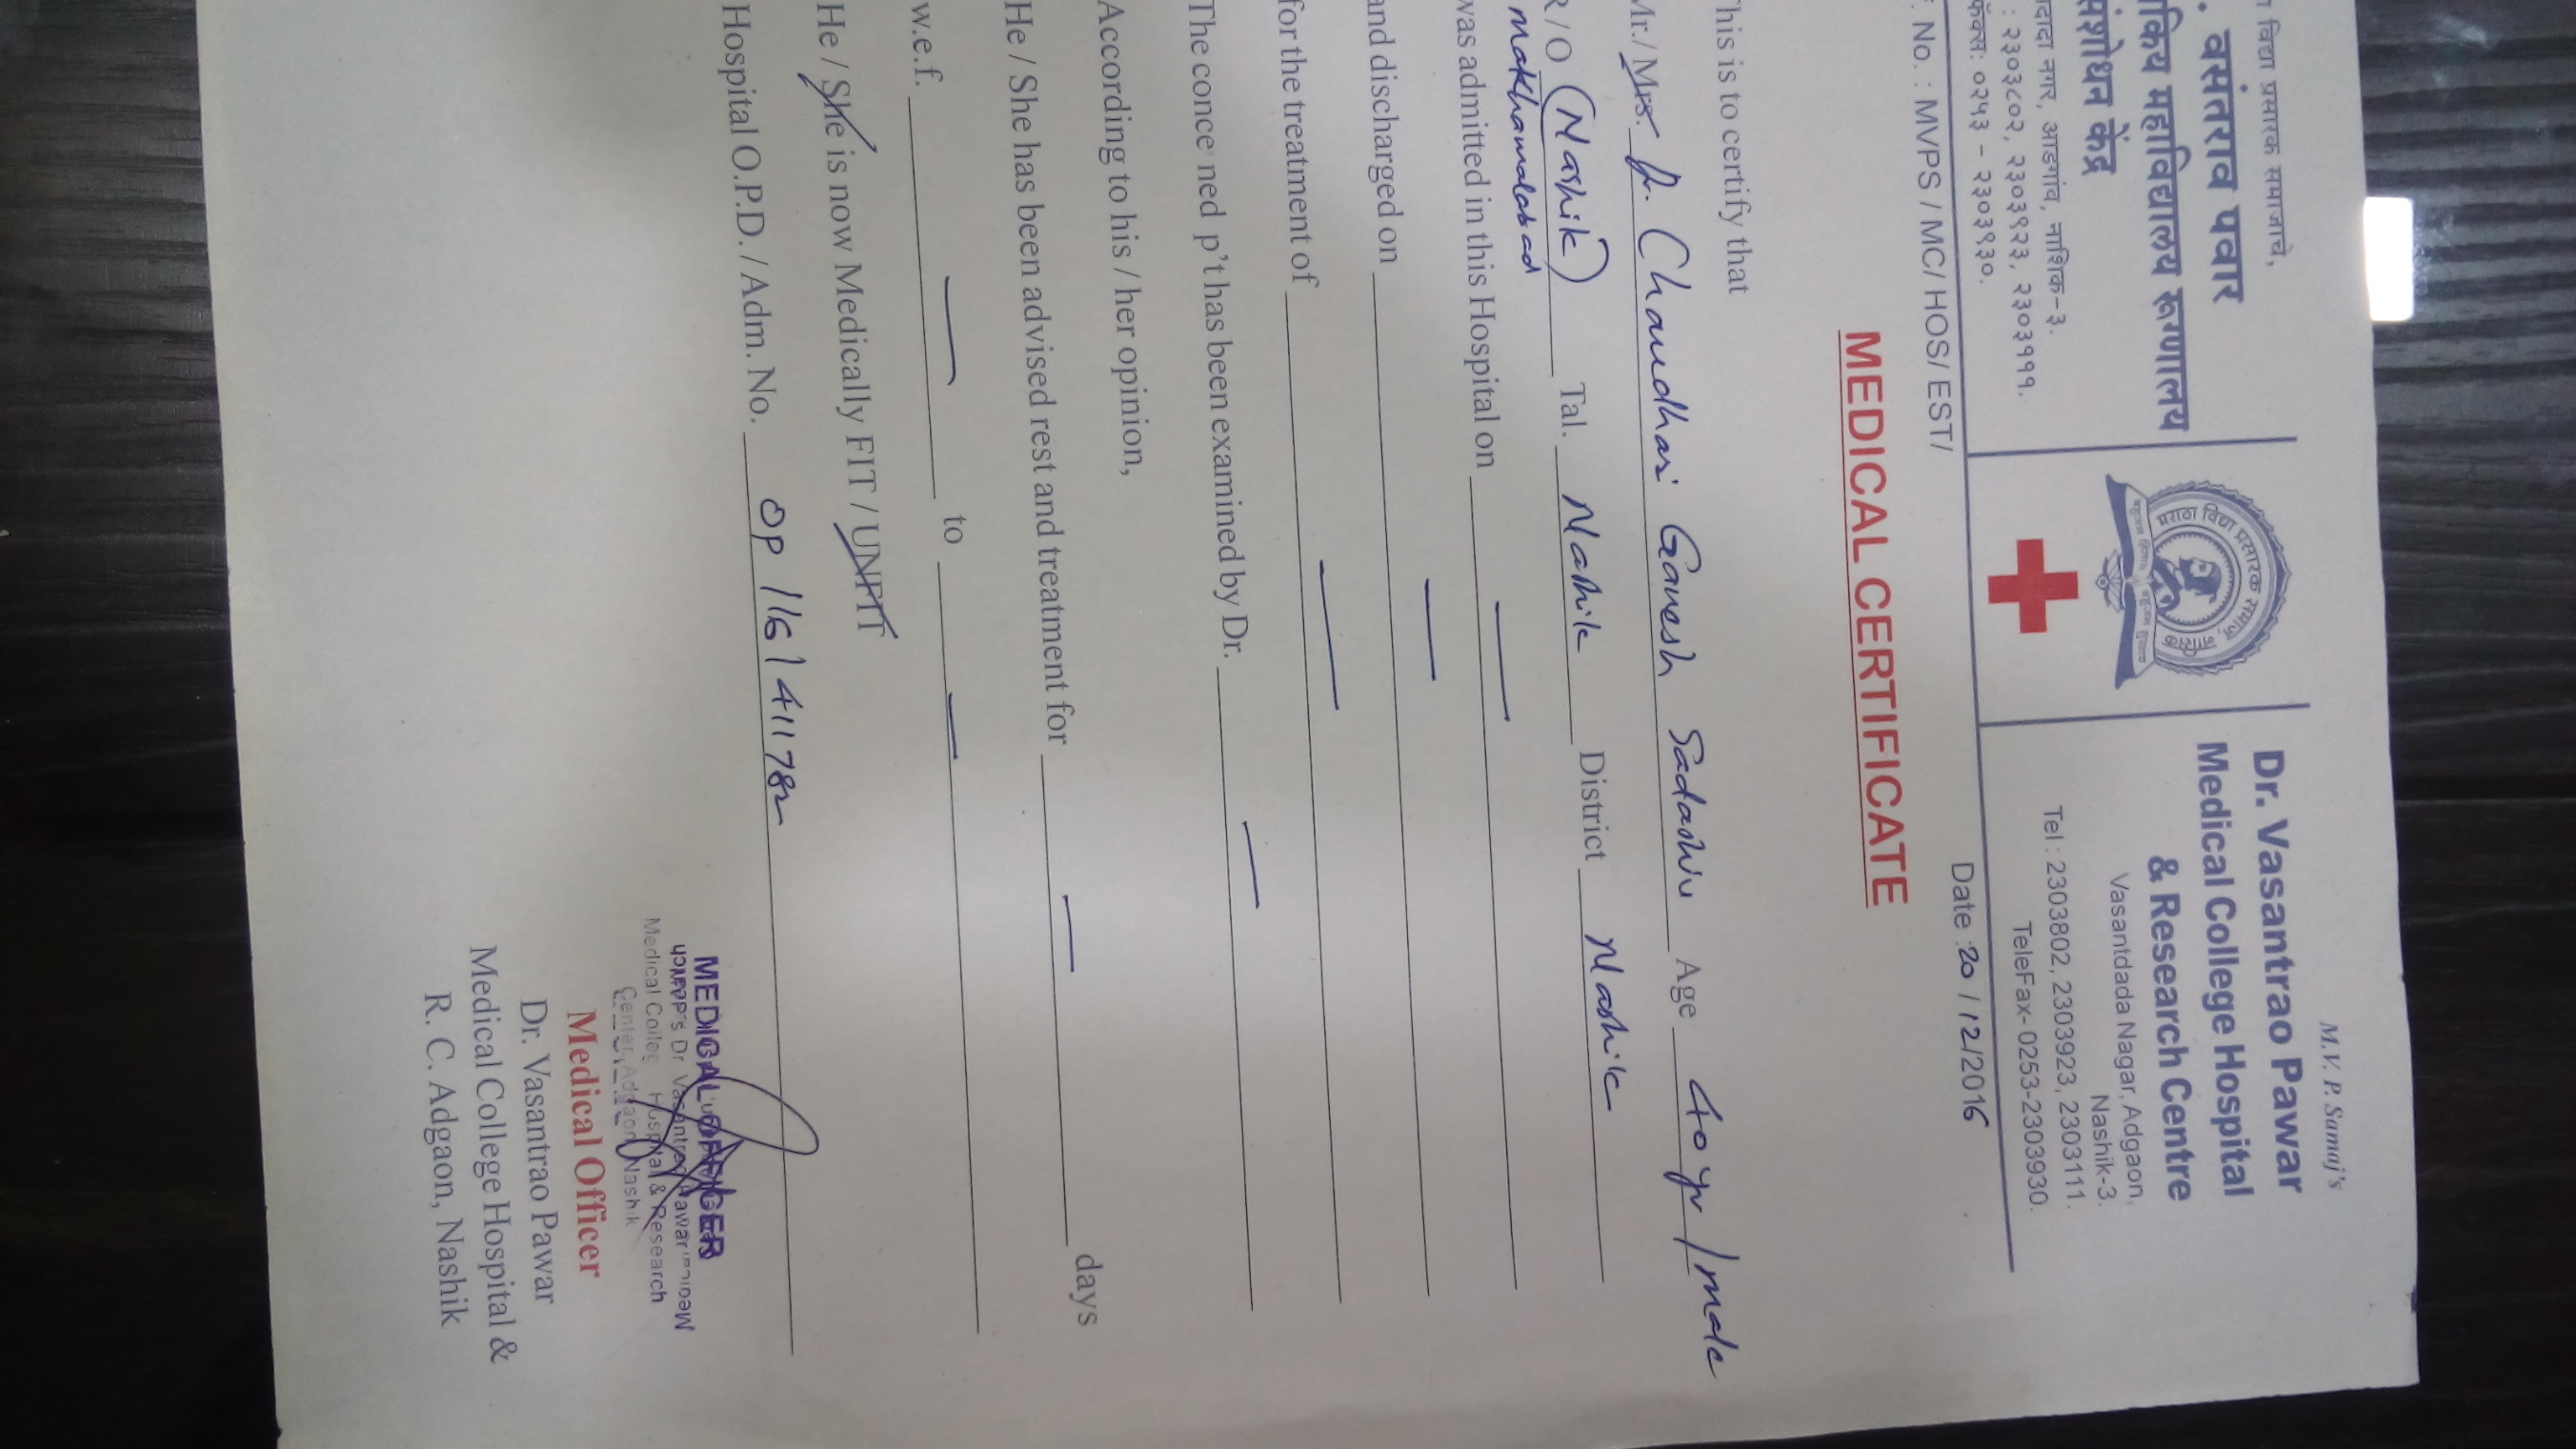 विद्या प्रसारक समाजाचे,
. वसंतराव पवार
किय महाविद्यालय रूग्णालय
संशोधन केंद्र
दादा नगर, आडगांव, नाशिक-३.
: २३०३८०२, २३०३९२३, २३०३१११.
फॅक्स: ०२५३ - २३०३९३०.
मराठा विद्या प्रसारक समाज, नाशिक
M.V. P. Samaj's
Dr. Vasantrao Pawar
Medical College Hospital
& Research Centre
Vasantdada Nagar, Adgaon,
Nashik-3.
Tel : 2303802, 2303923, 2303111.
TeleFax- 0253-2303930.
No. : MVPS / MC/ HOS/ EST/ Date : 20/12/2016
MEDICAL CERTIFICATE
This is to certify that
Mr./ Mrs. Chaudhari Ganesh Sadashiv Age 40 yr/male
R/O (Nashik) Tal. Nashik District Nashik
makhamalabad
was admitted in this Hospital on —
and discharged on —
for the treatment of —
The conce ned p't has been examined by Dr. —
According to his / her opinion,
He / She has been advised rest and treatment for — days
w.e.f. — to —
He / She is now Medically FIT / UNFIT
Hospital O.P.D. / Adm. No. OP/16/411782
MEDICAL OFFICER
Dr Vasantrao Pawar
Medical College Hospital & Research
Center, Adgaon Nashik
Medical Officer
Dr. Vasantrao Pawar
Medical College Hospital &
R. C. Adgaon, Nashik